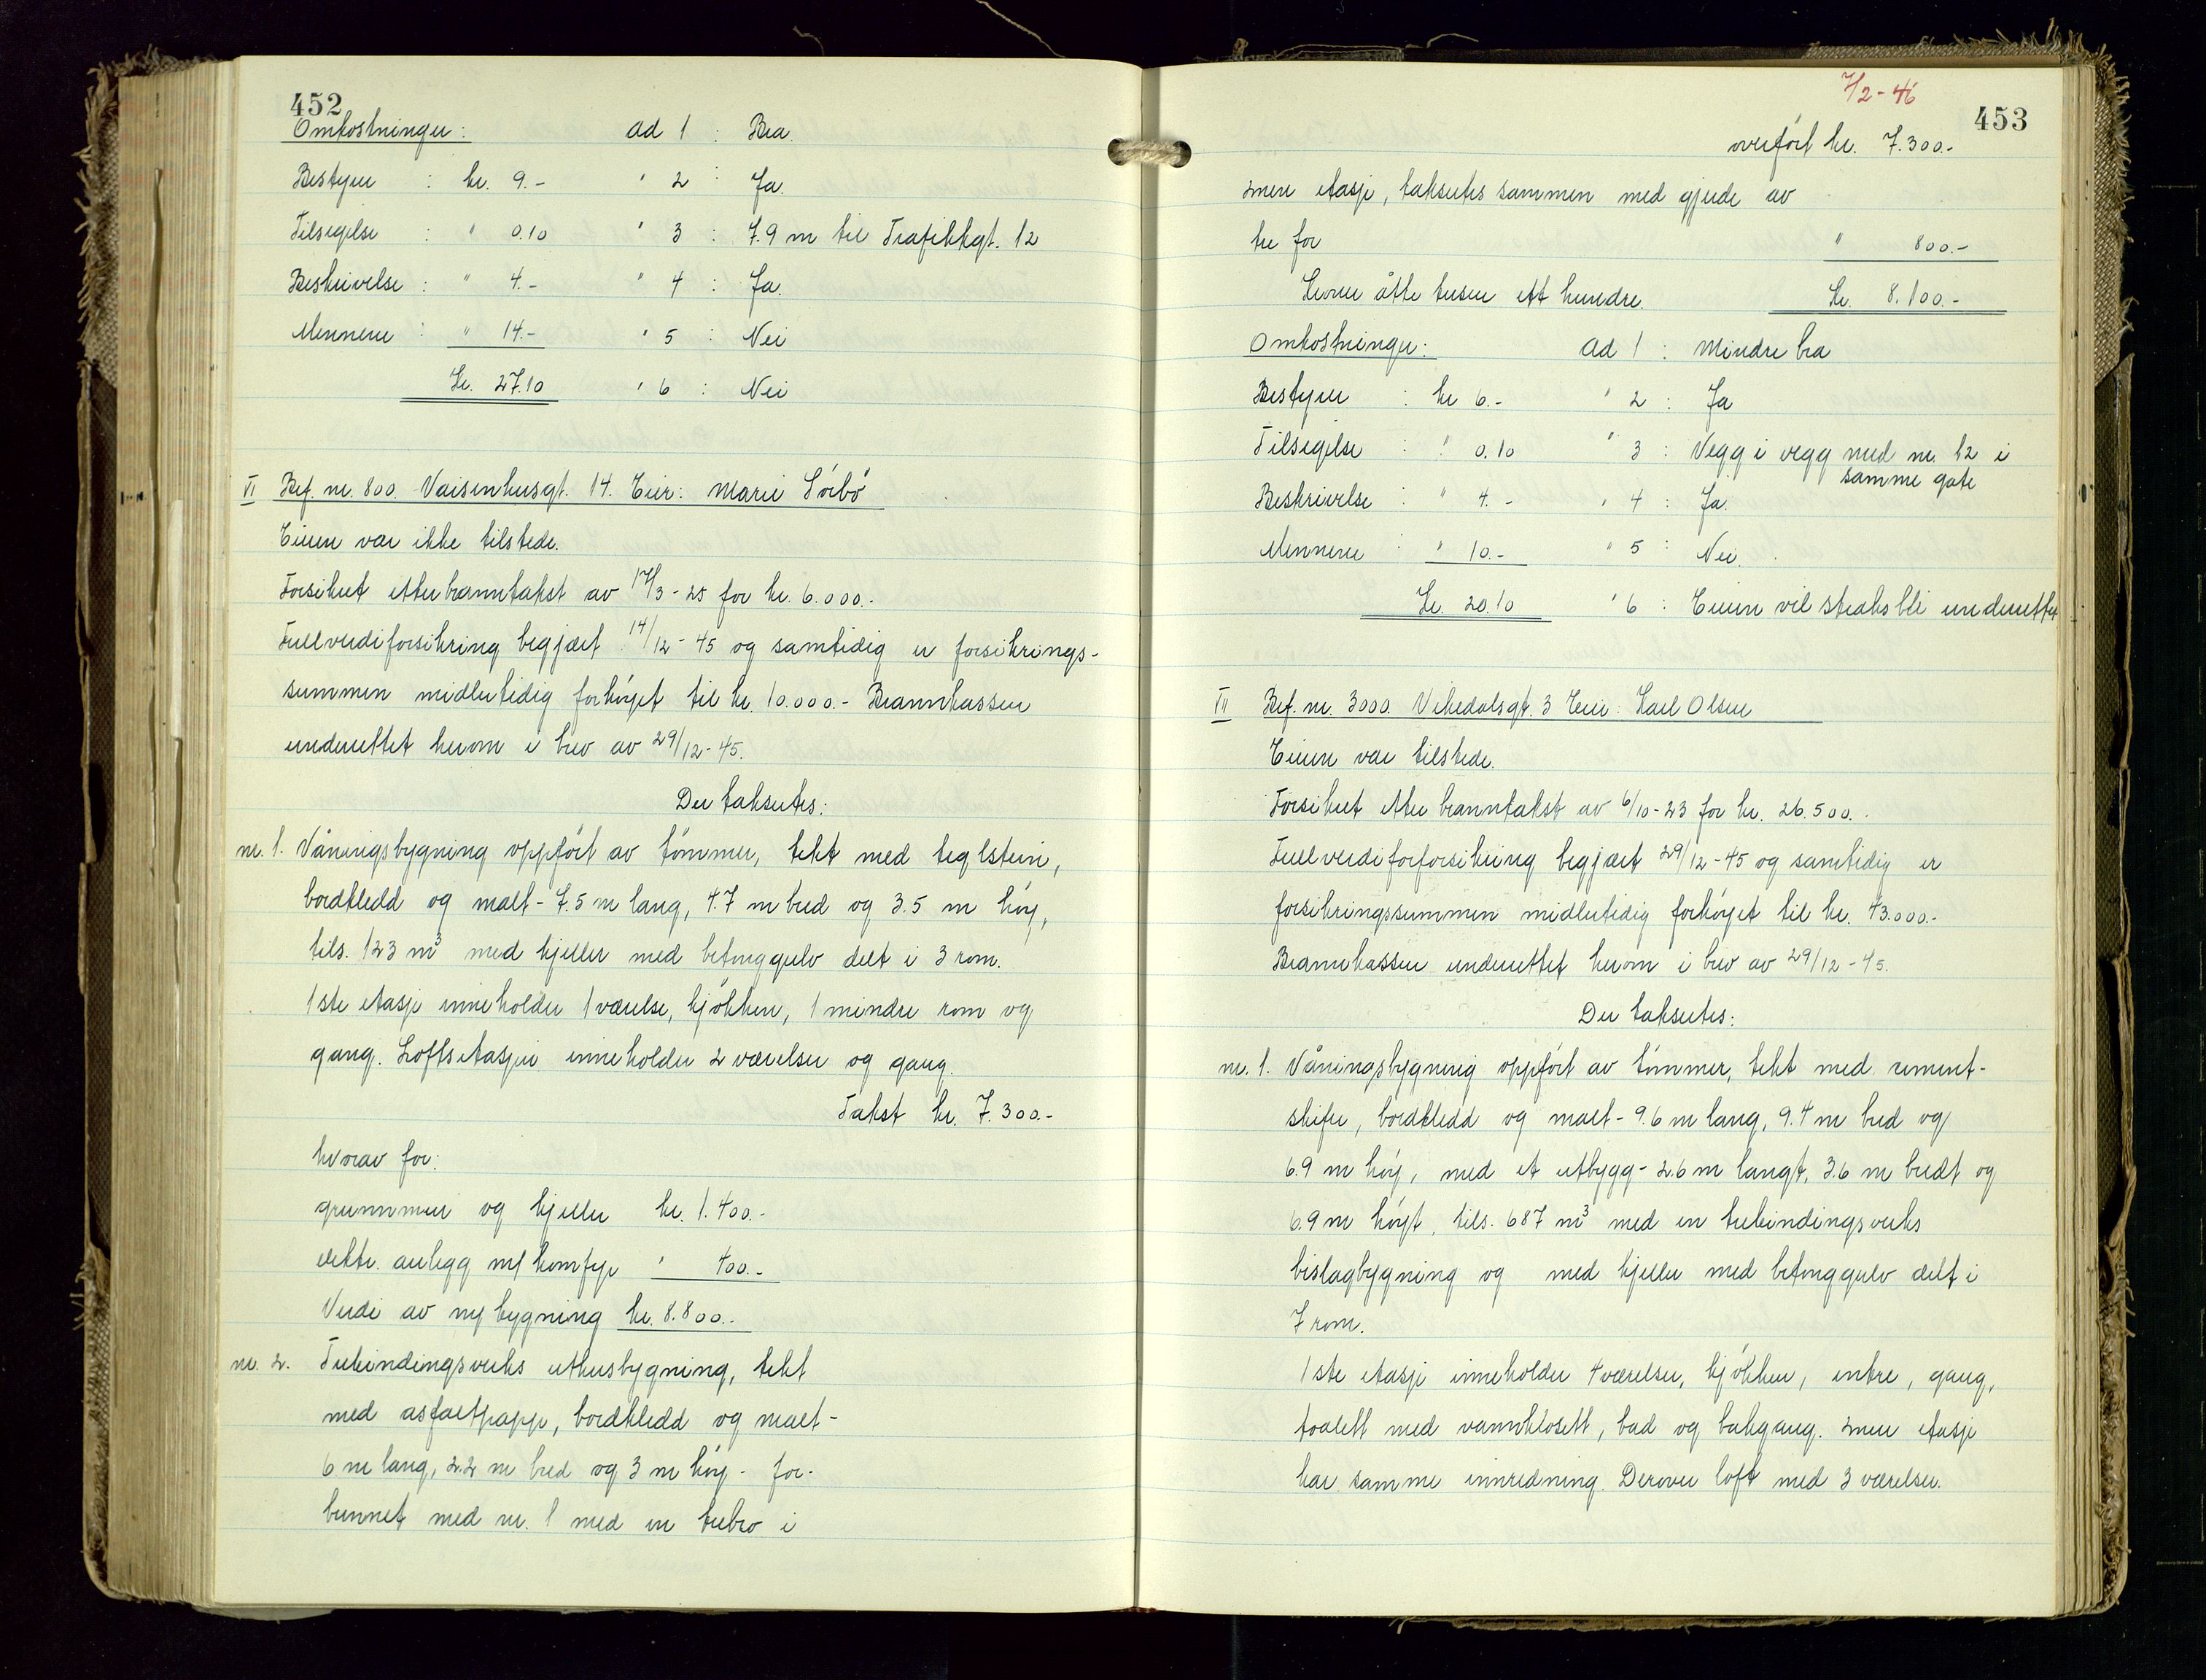 452
Omkostninger: ad 1 : Bra.
Bestyrer : kr. 9.- " 2 : Ja.
Tilsigelse : " 0.10 " 3 : 7.9 m til Trafikkgt. 12
Beskrivelse : " 4.- " 4 : Ja.
Mennene : " 14.- " 5 : Nei
Kr. 27.10 " 6 : Nei
VI Bef. nr. 800. Vaisenhusgt. 14. Eier: Marie Sörbö
Eieren var ikke tilstede.
Forsikret etter branntakst av 17/3-25 for kr. 6.000.-
Fullverdiforsikring begjært 14/12-45 og samtidig er forsikrings-
summen midlertidig forhöyet til kr. 10.000.- Brannkassen
underrettet herom i brev av 29/12-45.
Der takseres:
nr. 1. Våningsbygning oppfört av tömmer, tekt med teglstein,
bordkledd og malt - 7.5 m lang, 4.7 m bred og 3.5 m höy,
tils. 123 m³ med kjeller med betonggulv delt i 3 rom.
1ste etasje inneholder 1 værelse, kjökken, 1 mindre rom og
gang. Loftsetasjen inneholder 2 værelser og gang.
Takst kr. 7.300.-
hvorav for:
grunnmur og kjeller kr. 1.400.-
elektr. anlegg m/ komfyr " 400.-
Verdi av ny bygning kr. 8.800.-
nr. 2. Trebindingsverks uthusbygning, tekt
med asfaltpapp, bordkledd og malt -
6 m lang, 2.2 m bred og 3 m höy - for-
bunnet med nr. 1 med en trebro i
7/2-46
453
overfört kr. 7.300.-
2nen etasje, takseres sammen med gjerde av
tre for " 800.-
Kroner åtte tusen ett hundre. Kr. 8.100.-
Omkostninger: ad 1 : Mindre bra
Bestyrer : kr 6.- " 2 : Ja
Tilsigelse : " 0.10 " 3 : Vegg i vegg med nr. 12 i
samme gate
Beskrivelse : " 4.- " 4 : Ja.
Mennene : " 10.- " 5 : Nei.
Kr. 20.10 " 6 : Eieren vil straks bli underrettet
VII Bef. nr. 3000. Vikedalsgt. 3 Eier: Karl Olsen
Eieren var tilstede.
Forsikret etter branntakst av 6/10-23 for kr. 26.500.-
Fullverdiforforsikring begjært 29/12-45 og samtidig er
forsikringssummen midlertidig forhöyet til kr. 43.000.-
Brannkassen underrettet herom i brev av 29/12-45.
Der takseres:
nr. 1. Våningsbygning oppfört av tömmer, tekt med sement-
skifer, bordkledd og malt - 9.6 m lang, 9.4 m bred og
6.9 m höy, med et utbygg - 2.6 m langt, 3.6 m bredt og
6.9 m höyt, tils. 687 m³ med en trebindingsverks
bislagbygning og med kjeller med betonggulv delt i
7 rom.
1ste etasje inneholder 4 værelser, kjökken, entre, gang,
toalett med vannklosett, bad og bakgang. 2nen etasje
har samme innredning. Derover loft med 3 værelser.